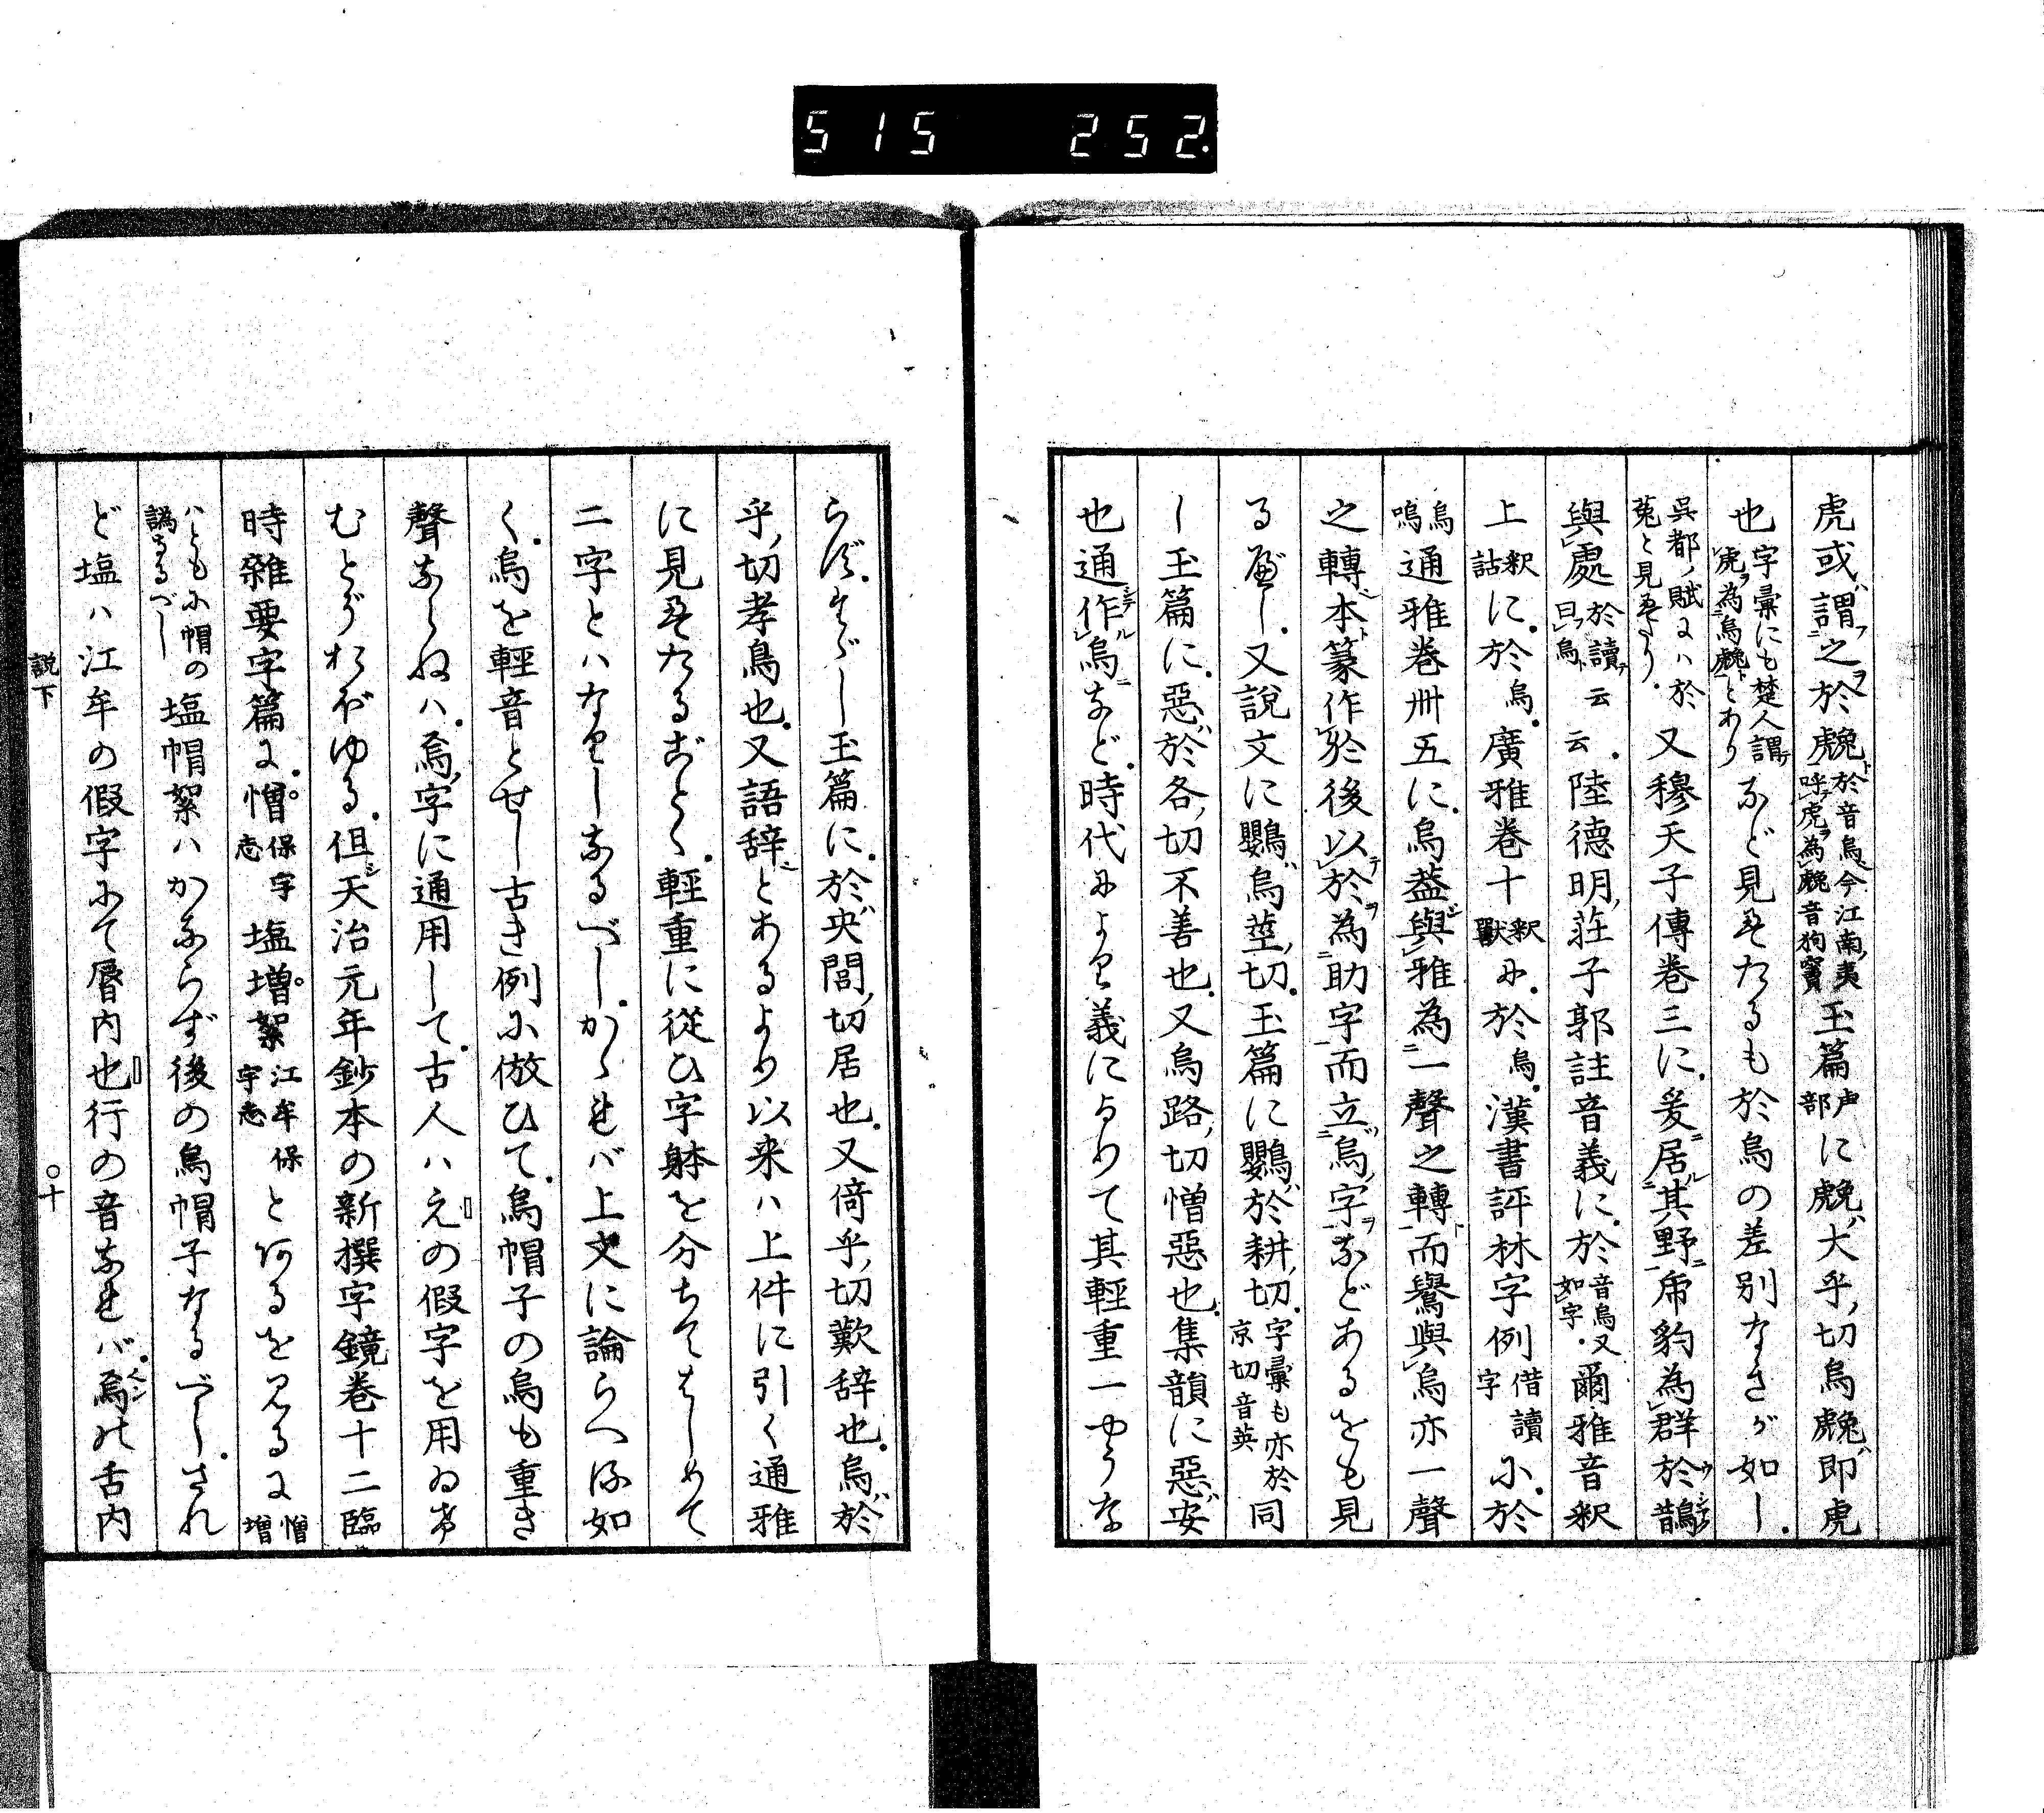 515 252.
虎或謂之於䖘於音烏今江南夷呼虎為䖘音狗竇玉篇声部に䖘大乎切烏䖘即虎
也字彙にも楚人謂虎為烏䖘とありなど見えたるも於烏の差別なきが如し
呉都ノ賦には於菟と見えたり又穆天子傳巻三に爰居其野虎豹為群於鵲
與處於讀曰烏云云陸德明荘子郭註音義に於音烏又如字爾雅音釈
上釈詁に於烏廣雅巻十釈獸に於烏漢書評林字例借讀字に於
烏嗚通雅巻卅五に烏葢與雅為一聲之轉而鷽與烏亦一聲
之轉本篆作於後以於為助字而立烏字などあるをも見
るべし又説文に鸚烏莖切玉篇に鸚於耕切字彙も亦於京切音英同
し玉篇に惡於各切不善也又烏路切憎惡也集韻に惡安
也通作烏など時代により義によりて其軽重一やうな
らずまづし玉篇に於央閭切居也又倚乎切歎辞也烏於
乎切孝鳥也又語辞とあるより以来ハ上件に引く通雅
に見えたるごとく輕重に従ひ字躰を分ちてはじめて
二字とハなりしなるべしかゝれバ上文に論らへる如
く烏を輕音とせし古き例に倣ひて烏帽子の烏も重き
聲ならねハ焉字に通用して古人ハえの假字を用ゐけ
むとぞおぼゆる但天治元年鈔本の新撰字鏡巻十二臨
時雜要字篇に㡟保字志塩増絮江牟保字志とあるを見るに憎増
ハともに帽の譌なるべし塩帽絮ハかならず後の烏帽子なるべしされ
ど塩ハ江牟の假字にて唇内也行の音なれバ焉の舌内
説下
〇十